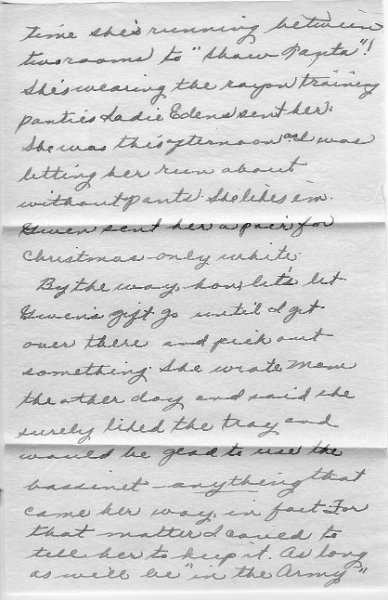 time she's running between
two rooms to "Show Panta"!
She's wearing the rayon training
panties Sadie Edens sent her.
She was this afternoon as I was
letting her run about
without pants. She likes em.
Gwen sent her a pair for
Christmas only white.
By the way hon, let's let
Gwen's gift go until I get
over there and pick out
something. She wrote Mom
the other day and said she
surely liked the tray and
would be glad to use the
bassinet - anything that
came her way in fact. For
that matter I caved to
tell her to keep it. As long
as we'll be "in the Army"